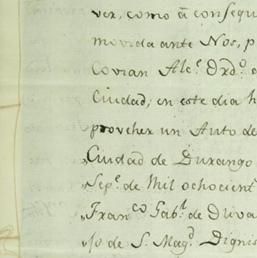 ver, como â consequ
movida ante Nos, p
Covian Alc.ᵉ Ordᵒ. d
Ciudad; en este dia h
proveher un Auto de
„Ciudad de Durango
„Sepᵉ. de Mil ochocient
„Francᵒ Gabˡ. de Oliva
„jo de S. Magᵈ. Dignis